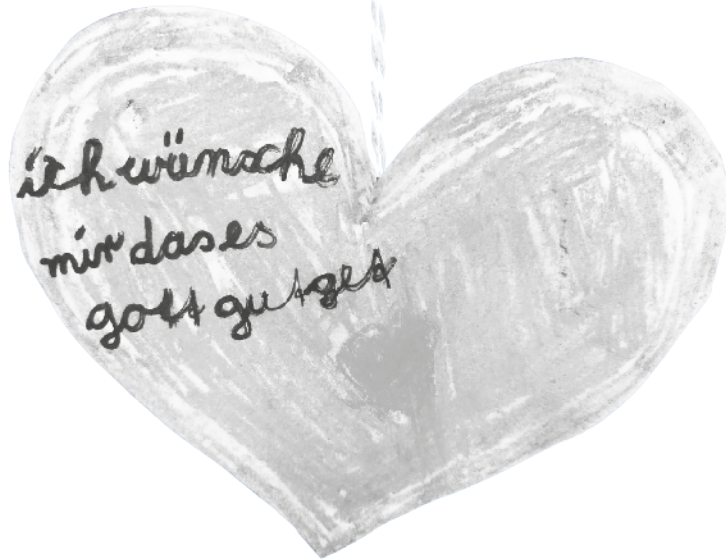 ich wünsche
mir das es
gott gut get